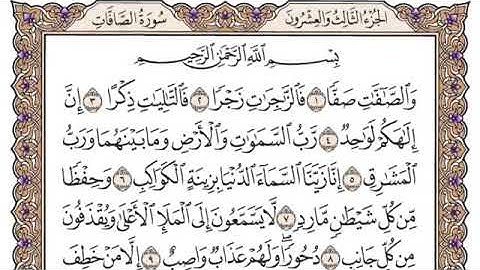 الجزء الثالث والعشرون
سورة الصافات
بِسْمِ اللَّهِ الرَّحْمَٰنِ الرَّحِيمِ
وَالصَّٰٓفَّٰتِ صَفًّا ١ فَالزَّٰجِرَٰتِ زَجْرًا ٢ فَالتَّٰلِيَٰتِ ذِكْرًا ٣ إِنَّ
إِلَٰهَكُمْ لَوَٰحِدٌ ٤ رَّبُّ السَّمَٰوَٰتِ وَالْأَرْضِ وَمَا بَيْنَهُمَا وَرَبُّ
الْمَشَٰرِقِ ٥ إِنَّا زَيَّنَّا السَّمَآءَ الدُّنْيَا بِزِينَةٍ الْكَوَاكِبِ ٦ وَحِفْظًا
مِّن كُلِّ شَيْطَٰنٍ مَّارِدٍ ٧ لَّا يَسَّمَّعُونَ إِلَى الْمَلَإِ الْأَعْلَىٰ وَيُقْذَفُونَ
مِن كُلِّ جَانِبٍ ٨ دُحُورًا ۖ وَلَهُمْ عَذَابٌ وَاصِبٌ ٩ إِلَّا مَنْ خَطِفَ